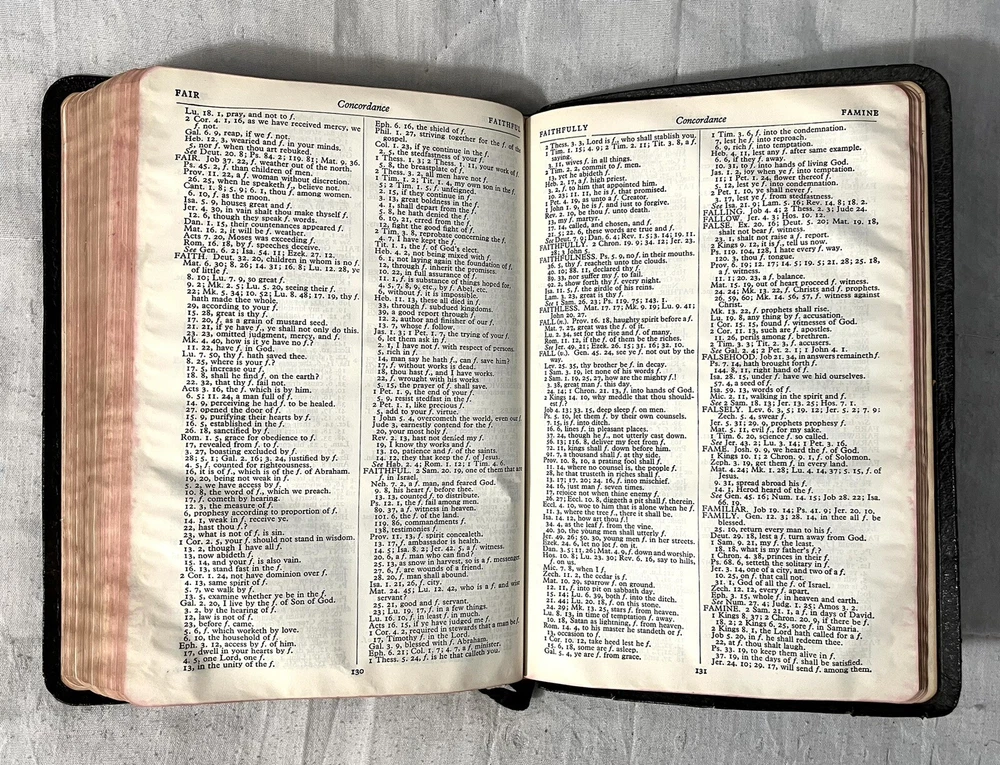 FAIR
Concordance
FAITHFUL
Lu. 18. 1, pray, and not to f.
2 Cor. 4. 1, 16, as we have received mercy, we
f. not.
Gal. 6. 9, reap, if we f. not.
Heb. 12. 3, wearied and f. in your minds.
5, nor f. when thou art rebuked.
See Deut. 20. 8; Ps. 84. 2; 119. 81; Mat. 9. 36.
FAIR. Job 37. 22, f. weather out of the north.
Ps. 45. 2, f. than children of men.
Prov. 11. 22, a f. woman without discretion.
26. 25, when he speaketh f., believe not.
Cant. 1. 8; 5. 9; 6. 1, thou f. among women.
6. 10, f. as the moon.
Isa. 5. 9, houses great and f.
Jer. 4. 30, in vain shalt thou make thyself f.
12. 6, though they speak f. words.
Dan. 1. 15, their countenances appeared f.
Mat. 16. 2, it will be f. weather.
Acts 7. 20, Moses was exceeding f.
Rom. 16. 18, by f. speeches deceive.
See Gen. 6. 2; Isa. 54. 11; Ezek. 27. 12.
FAITH. Deut. 32. 20, children in whom is no f.
Mat. 6. 30; 8. 26; 14. 31; 16. 8; Lu. 12. 28, ye
of little f.
8. 10; Lu. 7. 9, so great f.
9. 2; Mk. 2. 5; Lu. 5. 20, seeing their f.
22; Mk. 5. 34; 10. 52; Lu. 8. 48; 17. 19, thy f.
hath made thee whole.
29, according to your f.
15. 28, great is thy f.
17. 20, f. as a grain of mustard seed.
21. 21, if ye have f., ye shall not only do this.
23. 23, omitted judgment, mercy, and f.
Mk. 4. 40, how is it ye have no f.?
11. 22, have f. in God.
Lu. 7. 50, thy f. hath saved thee.
8. 25, where is your f.?
17. 5, increase our f.
18. 8, shall he find f. on the earth?
22. 32, that thy f. fail not.
Acts 3. 16, the f. which is by him.
6. 5; 11. 24, a man full of f.
14. 9, perceiving he had f. to be healed.
27, opened the door of f.
15. 9, purifying their hearts by f.
16. 5, established in the f.
26. 18, sanctified by f.
Rom. 1. 5, grace for obedience to f.
17, revealed from f. to f.
3. 27, boasting excluded by f.
28; 5. 1; Gal. 2. 16; 3. 24, justified by f.
4. 5, f. counted for righteousness.
16, it is of f., which is of the f. of Abraham.
19, 20, being not weak in f.
5. 2, we have access by f.
10. 8, the word of f., which we preach.
17, f. cometh by hearing.
12. 3, the measure of f.
6, prophesy according to proportion of f.
14. 1, weak in f. receive ye.
22, hast thou f.?
23, what is not of f. is sin.
1 Cor. 2. 5, your f. should not stand in wisdom.
13. 2, though I have all f.
13, now abideth f.
15. 14, and your f. is also vain.
16. 13, stand fast in the f.
2 Cor. 1. 24, not have dominion over f.
4. 13, same spirit of f.
5. 7, we walk by f.
13. 5, examine whether ye be in the f.
Gal. 2. 20, I live by the f. of Son of God.
3. 2, by the hearing of f.
12, law is not of f.
23, before f. came.
5. 6, f. which worketh by love.
6. 10, the household of f.
Eph. 3. 12, access by f. of him.
17, dwell in your hearts by f.
4. 5, one Lord, one f.
13, in the unity of the f.
Eph. 6. 16, the shield of f.
Phil. 1. 27, striving together for the f. of the
gospel.
Col. 1. 23, if ye continue in the f.
2. 5, the stedfastness of your f.
1 Thess. 1. 3; 2 Thess. 1. 11, your work of f.
2 Thess. 3. 2, all men have not f.
1 Tim. 1. 2; Tit. 1. 4, my own son in the f.
5; 2 Tim. 1. 5, f. unfeigned.
2. 15, if they continue in f.
3. 13, great boldness in the f.
4. 1, shall depart from the f.
5. 8, he hath denied the f.
6. 10, 21, erred from the f.
12, fight the good fight of f.
2 Tim. 3. 8, reprobate concerning the f.
4. 7, I have kept the f.
Tit. 1. 1, the f. of God's elect.
Heb. 4. 2, not being mixed with f.
6. 1, not laying again the foundation of f.
12, through f. inherit the promises.
10. 22, in full assurance of f.
11. 1, f. is substance of things hoped for.
4, 5, 7, 8, 9, etc., by f. Abel, etc.
6, without f. it is impossible.
Heb. 11. 13, these all died in f.
33, through f. subdued kingdoms.
39, a good report through f.
12. 2, author and finisher of our f.
13. 7, whose f. follow.
Jas. 1. 3; 1 Pet. 1. 7, the trying of your f.
6, let them ask in f.
2. 1, have not f. with respect of persons.
5, rich in f.
14, man say he hath f., can f. save him?
17, f. without works is dead.
18, thou hast f., and I have works.
22, f. wrought with his works.
5. 15, the prayer of f. shall save.
1 Pet. 1. 9, the end of your f.
5. 9, resist stedfast in the f.
2 Pet. 1. 1, like precious f.
5, add to your f. virtue.
1 John 5. 4, overcometh the world, even our f.
Jude 3, earnestly contend for the f.
20, your most holy f.
Rev. 2. 13, hast not denied my f.
19, I know thy works and f.
13. 10, patience and f. of the saints.
14. 12, they that keep the f. of Jesus.
See Hab. 2. 4; Rom. 1. 12; 1 Tim. 4. 6.
FAITHFUL. 2 Sam. 20. 19, one of them that are
f. in Israel.
Neh. 7. 2, a f. man, and feared God.
9. 8, his heart f. before thee.
13. 13, counted f. to distribute.
Ps. 12. 1, the f. fail among men.
89. 37, a f. witness in heaven.
101. 6, the f. of the land.
119. 86, commandments f.
138, testimonies f.
Prov. 11. 13, f. spirit concealeth.
13. 17, f. ambassador is health.
14. 5; Isa. 8. 2; Jer. 42. 5, a f. witness.
20. 6, a f. man who can find?
25. 13, as snow in harvest, so is a f. messenger.
27. 6, f. are wounds of a friend.
28. 20, f. man shall abound.
Isa. 1. 21, 26, f. city.
Mat. 24. 45; Lu. 12. 42, who is a f. and wise
servant?
25. 21, good and f. servant.
23; Lu. 19. 17, f. in a few things.
Lu. 16. 10, f. in least f. in much.
Acts 16. 15, if ye have judged me f.
1 Cor. 4. 2, required in stewards that a man be f.
17, Timothy f. in the Lord.
Gal. 3. 9, blessed with f. Abraham.
Eph. 6. 21; Col. 1. 7; 4. 7, a f. minister.
1 Thess. 5. 24, f. is he that calleth you.
130
FAITHFULLY
Concordance
FAMINE
2 Thess. 3. 3, Lord is f., who shall stablish you.
1 Tim. 1. 15; 4. 9; 2 Tim. 2. 11; Tit. 3. 8, a f.
saying.
3. 11, wives f. in all things.
2 Tim. 2. 2, commit to f. men.
13, yet he abideth f.
Heb. 2. 17, a f. high priest.
3. 2, f. to him that appointed him.
10. 23; 11. 11, he is f. that promised.
1 Pet. 4. 19, as unto a f. Creator.
1 John 1. 9, he is f. and just to forgive.
Rev. 2. 10, be thou f. unto death.
13, my f. martyr.
17. 14, called, and chosen, and f.
21. 5; 22. 6, these words are true and f.
See Deut. 7. 9; Dan. 6. 4; Rev. 1. 5; 3. 14; 19. 11.
FAITHFULLY. 2 Chron. 19. 9; 34. 12; Jer. 23.
28; 3 John 5.
FAITHFULNESS. Ps. 5. 9, no f. in their mouths.
36. 5, thy f. reacheth unto the clouds.
40. 10; 88. 11, declared thy f.
89. 33, nor suffer my f. to fail.
92. 2, show forth thy f. every night.
Isa. 11. 5, f. the girdle of his reins.
Lam. 3. 23, great is thy f.
See 1 Sam. 26. 23; Ps. 119. 75; 143. 1.
FAITHLESS. Mat. 17. 17; Mk. 9. 19; Lu. 9. 41;
John 20. 27.
FALL (n.). Prov. 16. 18, haughty spirit before a f.
Mat. 7. 27, great was the f. of it.
Lu. 2. 34, set for the rise and f. of many.
Rom. 11. 12, if the f. of them be the riches.
See Jer. 49. 21; Ezek. 26. 15; 31. 16; 32. 10.
FALL (v.). Gen. 45. 24, see ye f. not out by the
way.
Lev. 25. 35, thy brother be f. in decay.
1 Sam. 3. 19, let none of his words f.
2 Sam. 1. 19, 25, 27, how are the mighty f.!
3. 38, great man f. this day.
24. 14; 1 Chron. 21. 13, f. into hands of God.
2 Kings 14. 10, why meddle that thou should-
est f.?
Job 4. 13; 33. 15, deep sleep f. on men.
Ps. 5. 10, let them f. by their own counsels.
7. 15, is f. into ditch.
16. 6, lines f. in pleasant places.
37. 24, though he f., not utterly cast down.
56. 13; 116. 8, deliver my feet from f.
72. 11, kings shall f. down before him.
91. 7, a thousand shall f. at thy side.
Prov. 10. 8, 10, a prating fool shall f.
11. 14, where no counsel is, the people f.
28, he that trusteth in riches shall f.
13. 17; 17. 20; 24. 16, f. into mischief.
24. 16, just man f. seven times.
17, rejoice not when thine enemy f.
26. 27; Eccl. 10. 8, diggeth a pit shall f. therein.
Eccl. 4. 10, woe to him that is alone when he f.
11. 3, where the tree f., there it shall be.
Isa. 14. 12, how art thou f.!
34. 4, as the leaf f. from the vine.
40. 30, the young men shall utterly f.
Jer. 49. 26; 50. 30, young men f. in her streets.
Ezek. 24. 6, let no lot f. on it.
Dan. 3. 5; 11. 26; Mat. 4. 9, f. down and worship.
Hos. 10. 8; Lu. 23. 30; Rev. 6. 16, say to hills,
f. on us.
Mic. 7. 8, when I f.
Zech. 11. 2, the cedar is f.
Mat. 10. 29, sparrow f. on ground.
12. 11, f. into pit on sabbath day.
15. 14; Lu. 6. 39, both f. into the ditch.
21. 44; Lu. 20. 18, f. on this stone.
24. 29; Mk. 13. 25, stars f. from heaven.
Lu. 8. 13, in time of temptation f. away.
10. 18, Satan as lightning f. from heaven.
Rom. 14. 4, to his master he standeth or f.
13, occasion to f.
1 Cor. 10. 12, take heed lest he f.
15. 6, 18, some are f. asleep.
Gal. 5. 4, ye are f. from grace.
1 Tim. 3. 6, f. into the condemnation.
7, lest he f. into reproach.
6. 9, rich f. into temptation.
Heb. 4. 11, lest any f. after same example.
6. 6, if they f. away.
10. 31, to f. into hands of living God.
Jas. 1. 2, joy when ye f. into temptation.
11; 1 Pet. 1. 24, flower thereof f.
5. 12, lest ye f. into condemnation.
2 Pet. 1. 10, ye shall never f.
3. 17, lest ye f. from stedfastness.
See Isa. 21. 9; Lam. 5. 16; Rev. 14. 8; 18. 2.
FALLING. Job 4. 4; 2 Thess. 2. 3; Jude 24.
FALLOW. Jer. 4. 3; Hos. 10. 12.
FALSE. Ex. 20. 16; Deut. 5. 20; Mat. 19. 18,
shalt not bear f. witness.
23. 1, shalt not raise a f. report.
2 Kings 9. 12, it is f., tell us now.
Ps. 119. 104, 128, I hate every f. way.
120. 3, thou f. tongue.
Prov. 6. 19; 12. 17; 14. 5; 19. 5; 21. 28; 25. 18,
a f. witness.
11. 1; 20. 23, a f. balance.
Mat. 15. 19, out of heart proceed f. witness.
24. 24; Mk. 13. 22, f. Christs and f. prophets.
26. 59, 60; Mk. 14. 56, 57, f. witness against
Christ.
Mk. 13. 22, f. prophets shall rise.
Lu. 19. 8, any thing by f. accusation.
1 Cor. 15. 15, found f. witnesses of God.
2 Cor. 11. 13, such are f. apostles.
11. 26, perils among f. brethren.
2 Tim. 3. 3; Tit. 2. 3, f. accusers.
See Gal. 2. 4; 2 Pet. 2. 1; 1 John 4. 1.
FALSEHOOD. Job 21. 34, in answers remaineth f.
Ps. 7. 14, hath brought forth f.
144. 8, 11, right hand of f.
Isa. 28. 15, under f. have we hid ourselves.
57. 4, a seed of f.
Isa. 59. 13, words of f.
Mic. 2. 11, walking in the spirit and f.
See 2 Sam. 18. 13; Jer. 13. 25; Hos. 7. 1.
FALSELY. Lev. 6. 3, 5; 19. 12; Jer. 5. 2; 7. 9;
Zech. 5. 4, swear f.
Jer. 5. 31; 29. 9, prophets prophesy f.
Mat. 5. 11, evil f., for my sake.
1 Tim. 6. 20, science f. so called.
See Jer. 43. 2; Lu. 3. 14; 1 Pet. 3. 16.
FAME. Josh. 9. 9, we heard the f. of God.
1 Kings 10. 1; 2 Chron. 9. 1, f. of Solomon.
Zeph. 3. 19, get them f. in every land.
Mat. 4. 24; Mk. 1. 28; Lu. 4. 14, 37; 5. 15, f. of
Jesus.
9. 31, spread abroad his f.
14. 1, Herod heard of the f.
See Gen. 45. 16; Num. 14. 15; Job 28. 22; Isa.
66. 19.
FAMILIAR. Job 19. 14; Ps. 41. 9; Jer. 20. 10.
FAMILY. Gen. 12. 3; 28. 14, in thee all f. be
blessed.
25. 10, return every man to his f.
Deut. 29. 18, lest a f. turn away from God.
1 Sam. 9. 21, my f. the least.
18. 18, what is my father's f.?
1 Chron. 4. 38, princes in their f.
Ps. 68. 6, setteth the solitary in f.
Jer. 3. 14, one of a city, and two of a f.
10. 25, on f. that call not.
31. 1, God of all the f. of Israel.
Zech. 12. 12, every f. apart.
Eph. 3. 15, whole f. in heaven and earth.
See Num. 27. 4; Judg. 1. 25; Amos 3. 2.
FAMINE. 2 Sam. 21. 1, a f. in days of David.
1 Kings 8. 37; 2 Chron. 20. 9, if there be f.
18. 2; 2 Kings 6. 25, sore f. in Samaria.
2 Kings 8. 1, the Lord hath called for a f.
Job 5. 20, in f. he shall redeem thee.
22, at f. thou shalt laugh.
Ps. 33. 19, to keep them alive in f.
37. 19, in the days of f. shall be satisfied.
Jer. 24. 10; 29. 17, will send f. among them.
131